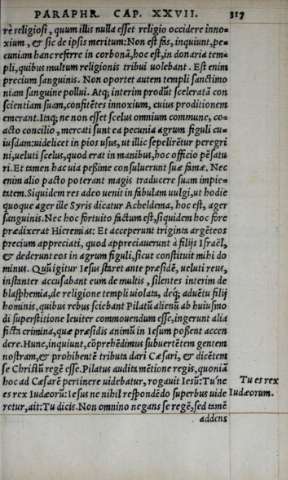 PARAPHR. CAP. XXVII. 317
re religiosi, quum illis nulla esset religio occidere inno=
xium, & sic de ipsis meritum: Non est fas, inquiunt, pe=
cuniam hanc referre in corbonā, hoc est, in donaria tem=
pli, quibus multum religionis tribui uolebant. Est enim
precium sanguinis. Non oportet autem templi sanctimo
niam sanguine pollui. Atq; interim produnt sceleratā con
scientiam suam, confitētes innoxium, cuius proditionem
emerant. Itaq; ne non esset scelus omnium commune, co=
acto concilio, mercati sunt ea pecunia agrum figuli cu=
iusdam: uidelicet in pios usus, ut illic sepelirētur peregri
ni, ueluti scelus, quod erat in manibus, hoc officio pēsatu
ri. Et tamen hac uia pessime consuluerunt suæ famæ. Nec
enim alio pacto poterant magis traducere suam impie=
tatem. Siquidem res adeo uenit in fabulam uulgi, ut hodie
quoque ager ille Syris dicatur Acheldema, hoc est, ager
sanguinis. Nec hoc fortuito factum est, siquidem hoc fore
prædixerat Hieremias: Et acceperunt triginta argēteos
precium appreciati, quod appreciauerunt à filijs Israēl,
& dederunt eos in agrum figuli, sicut constituit mihi do
minus. Quū igitur Iesus staret ante præsidē, ueluti reus,
instanter accusabant eum de multis, silentes interim de
blasphemia, de religione templi uiolata, deq; aduētu filij
hominis, quibus rebus sciebant Pilatū alienū ab huiusmo
di superstitione leuiter commouendum esse, ingerunt alia
ficta crimina, quæ præsidis animū in Iesum possent accen
dere. Hunc, inquiunt, cōprehēdimus subuertētem gentem
nostram, & prohibentē tributa dari Cæsari, & dicētem
se Christū regē esse. Pilatus audita mētione regis, quoniā
hoc ad Cæsarē pertinere uidebatur, rogauit Iesū: Tu'ne
es rex Iudæorū: Iesus ne nihil respōdēdo superbus uide
retur, ait: Tu dicis. Non omnino negans se regē, sed tamē
addens
Tu es rex
Iudæorum.